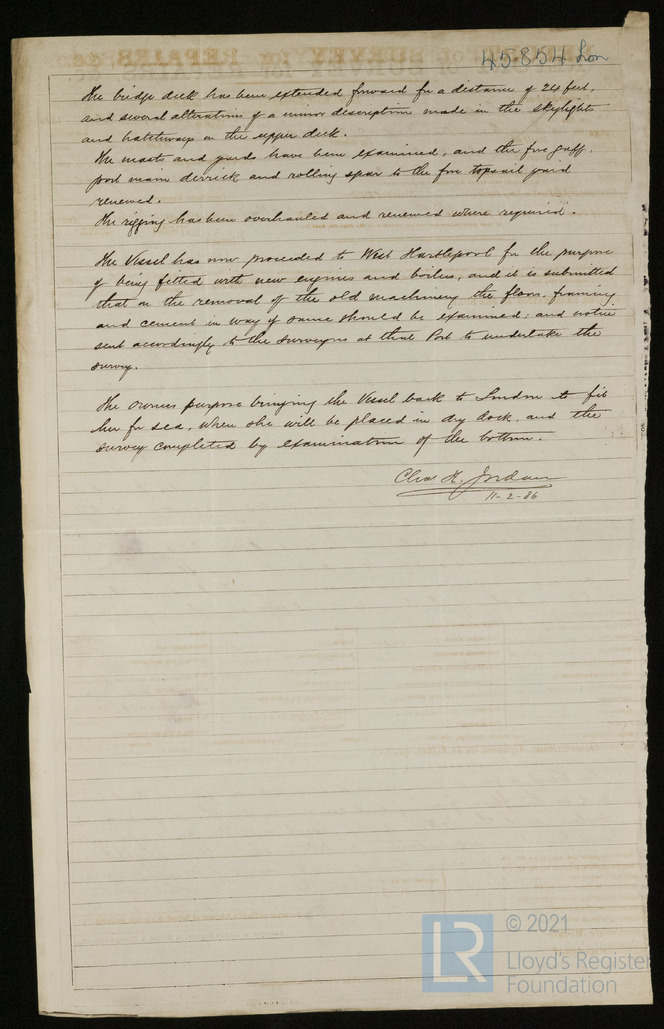 45854 Lon
The bridge deck has been extended forward for a distance of 24 feet,
and several alterations of a minor description made in the skylights
and hatchways on the upper deck.
The masts and yards have been examined, and the fore gaff.
port main derrick and rolling spar to the fore topsail yard
renewed.
The rigging has been overhauled and renewed where required.
The Vessel has now proceeded to West Hartlepool for the purpose
of being fitted with new engines and boilers, and it is submitted
that on the removal of the old machinery the floors, framing
and cement in way of same should be examined; and notice
sent accordingly to the Surveyors at that Port to undertake the
survey.
The owners purpose bringing the Vessel back to London to fit
her for sea, when she will be placed in dry dock, and the
survey completed by examination of the bottom.
Chas H. Jordan
11-2-86
LR
© 2021
Lloyd's Register
Foundation